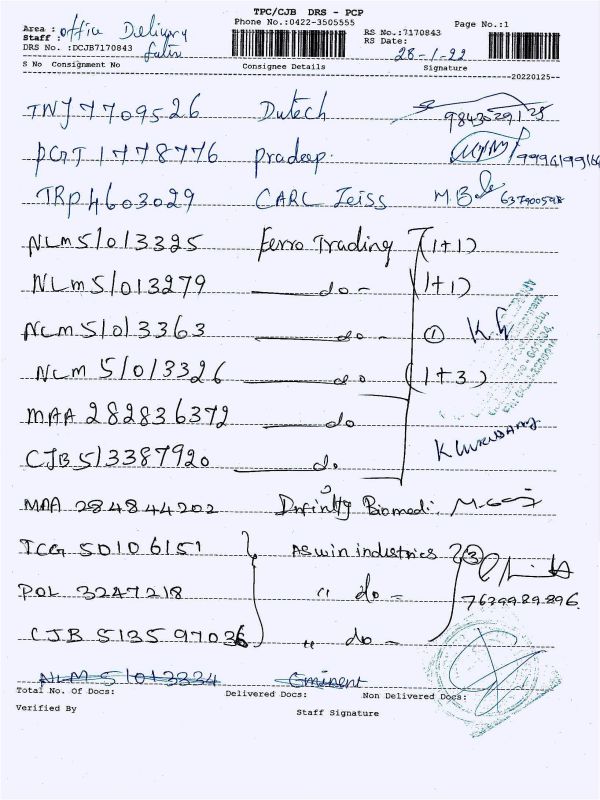 TPC/CJB DRS - PCP
Area : office Delivery
Phone No.:0422-3505555
Page No.:1
Staff :
DRS No. :DCJB7170843
RS No.:7170843
RS Date:
28-1-22
S No Consignment No
Consignee Details
Signature
--20220125--
TNJ 7709526 Dutech 9843029125
PGT 1778776 Pradeep. 9994199164
TRP 4603029 CARL Zeiss M.B
NLM 51013325 Ferro Trading (1+1)
NLM 51013279 do - (1+1)
NLM 51013363 do - ①
NLM 51013326 do (1+3)
MAA 282836372 do
CJB 513387920 do
MAA 284844202 Biomedi.
TCG 50106151 Aswin industries ③
POL 3247218 " do - 7639989896
CJB 513597036 " do -
NLM 51013334 Eminent
Total No. Of Docs: Delivered Docs: Non Delivered Docs:
Verified By Staff Signature